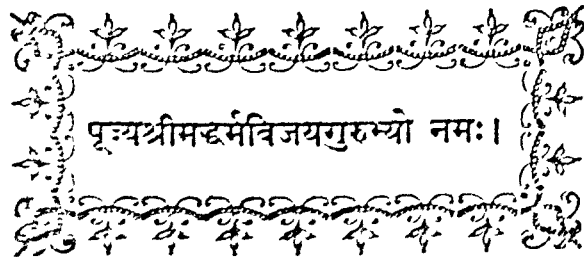 पूज्यश्रीमद्धर्मविजयगुरुभ्यो नमः।